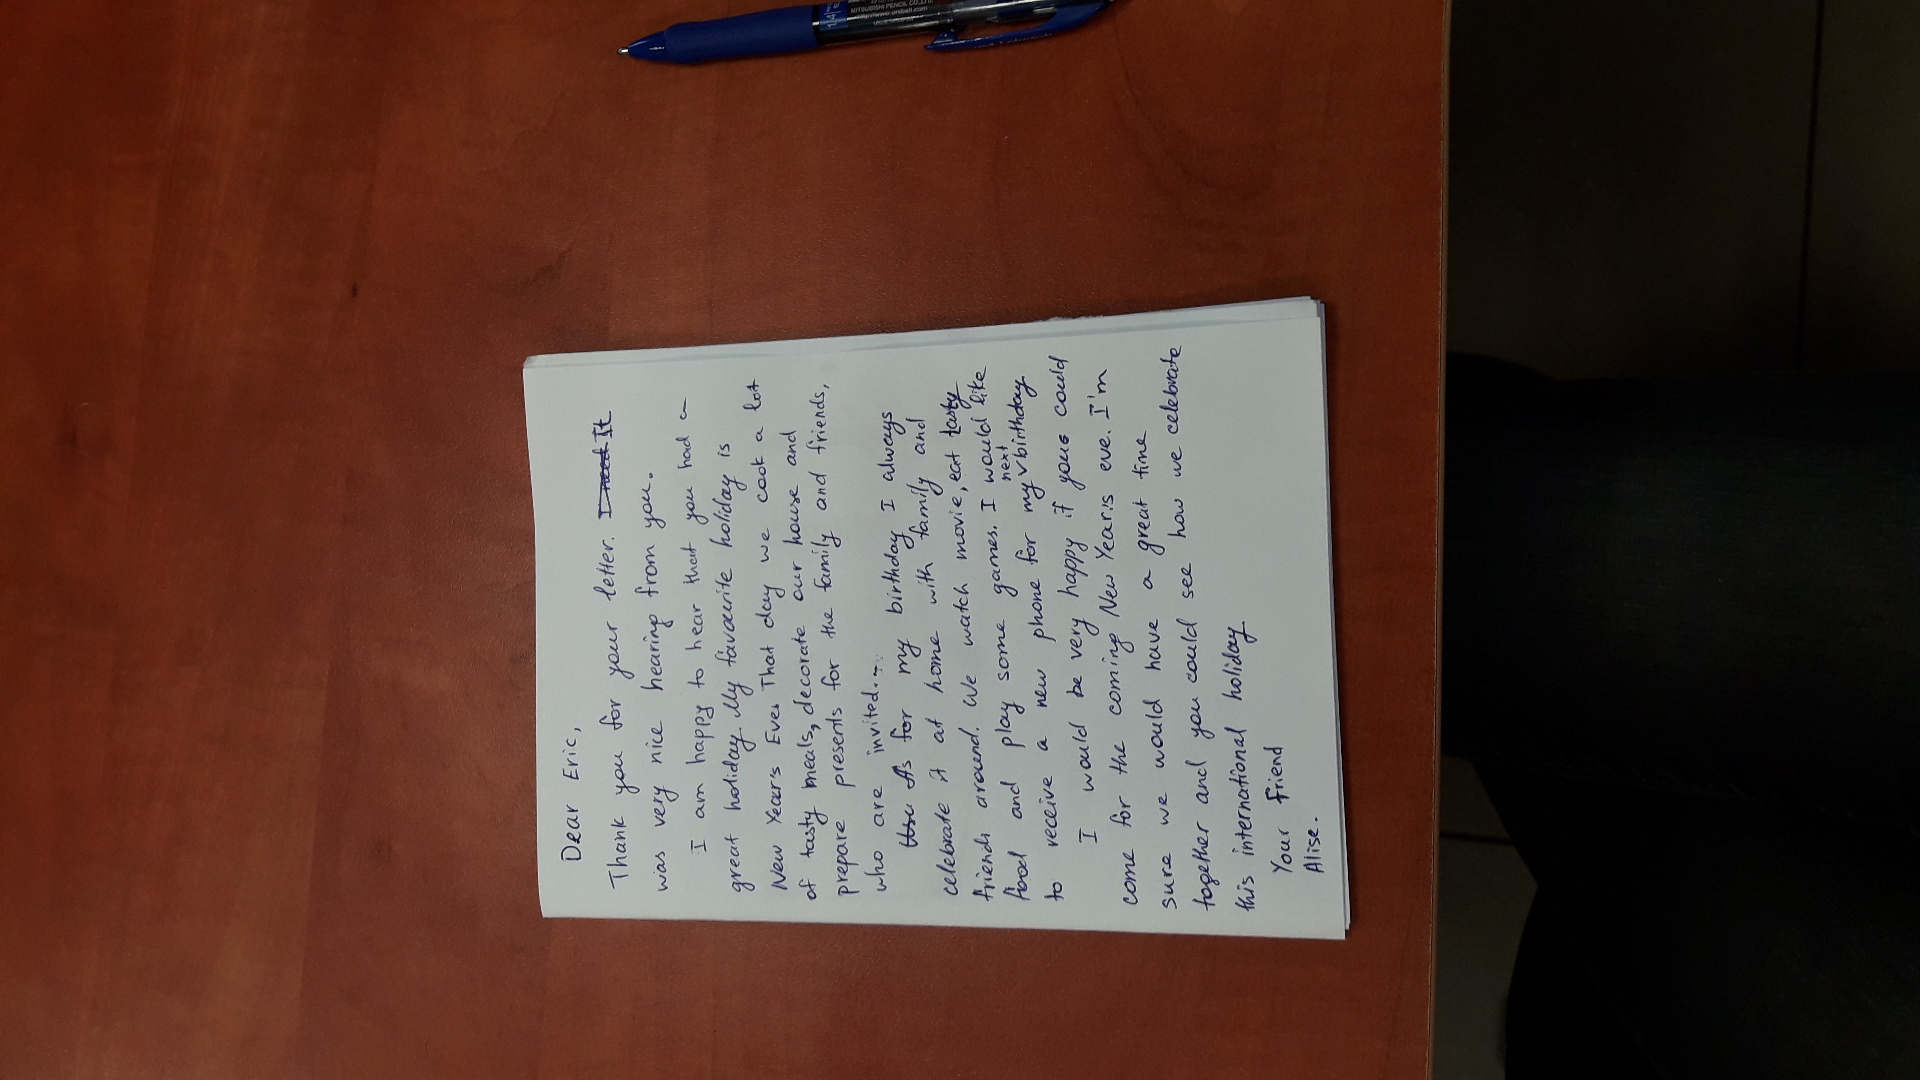 Dear Eric,
Thank you for your letter. It
was very nice hearing from you.
I am happy to hear that you had a
great holiday. My favourite holiday is
New Year's Eve. That day we cook a lot
of tasty meals, decorate our house and
prepare presents for the family and friends,
who are invited...
As for my birthday I always
celebrate it at home with family and
friends around. We watch movie, eat tasty
food and play some games. I would like
to receive a new phone for my next birthday
I would be very happy if you could
come for the coming New Year's eve. I'm
sure we would have a great time
together and you could see how we celebrate
this international holiday
Your friend
Alise.
MITSUBISHI PENCIL CO.,LTD.
http://www.uniball.com